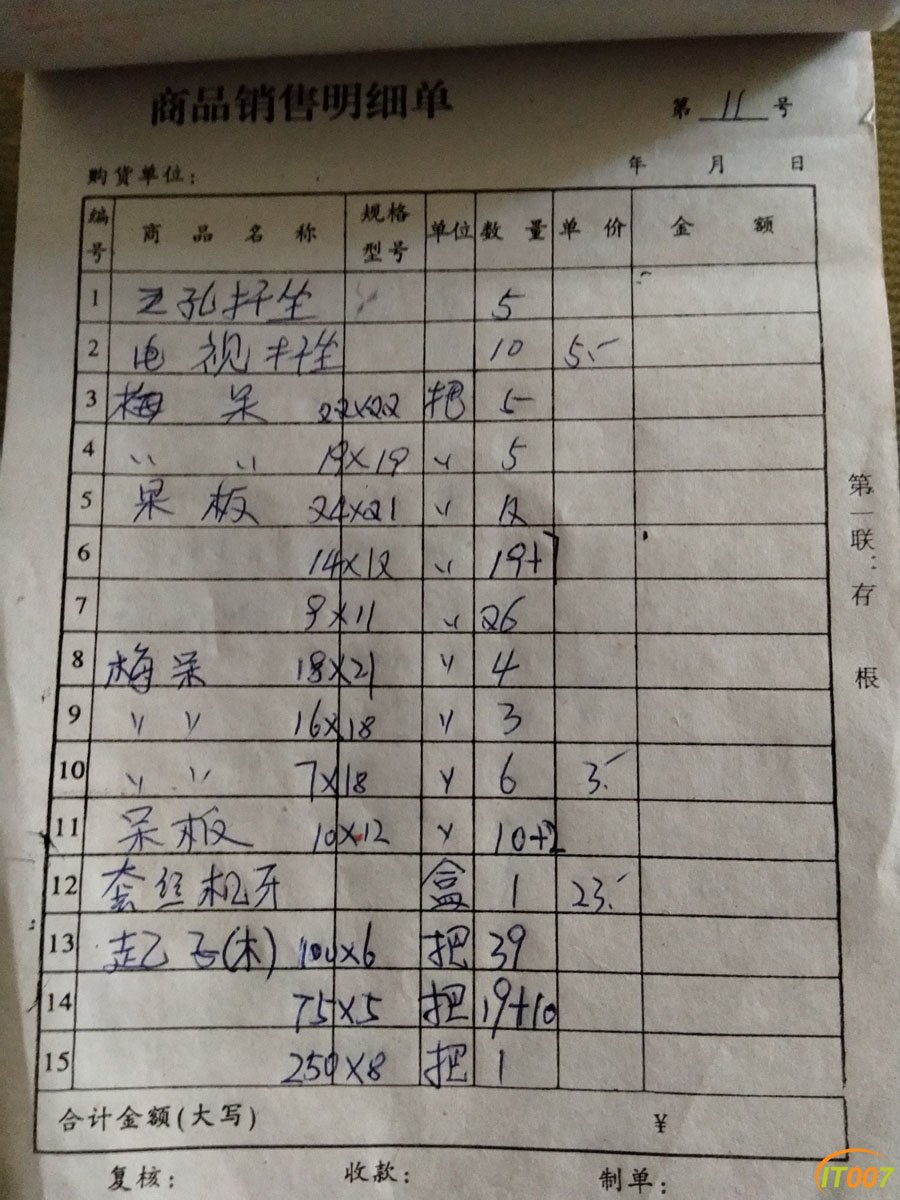 商品销售明细单
第 11 号
购货单位: 年 月 日
编号 商品名称 规格型号 单位 数量 单价 金额
1 五孔扦坐 5
2 电视扦坐 10 5.-
3 梅呆 22×22 把 5
4 〃 〃 19×19 〃 5
5 呆板 24×21 〃 12
6 14×12 〃 19+7
7 9×11 〃 26
8 梅呆 18×21 〃 4
9 〃 〃 16×18 〃 3
10 〃 〃 7×18 〃 6 3.-
11 呆板 10×12 〃 10+2
12 套丝机牙 盒 1 23.-
13 起子(木) 100×6 把 39
14 75×5 把 19+10
15 250×8 把 1
合计金额(大写) ¥
复核: 收款: 制单:
第一联:存根
IT007